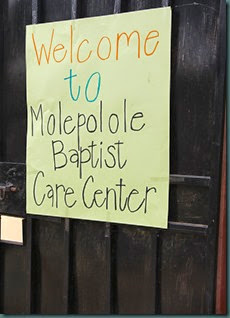 Welcome
to
Molepolole
Baptist
Care Center